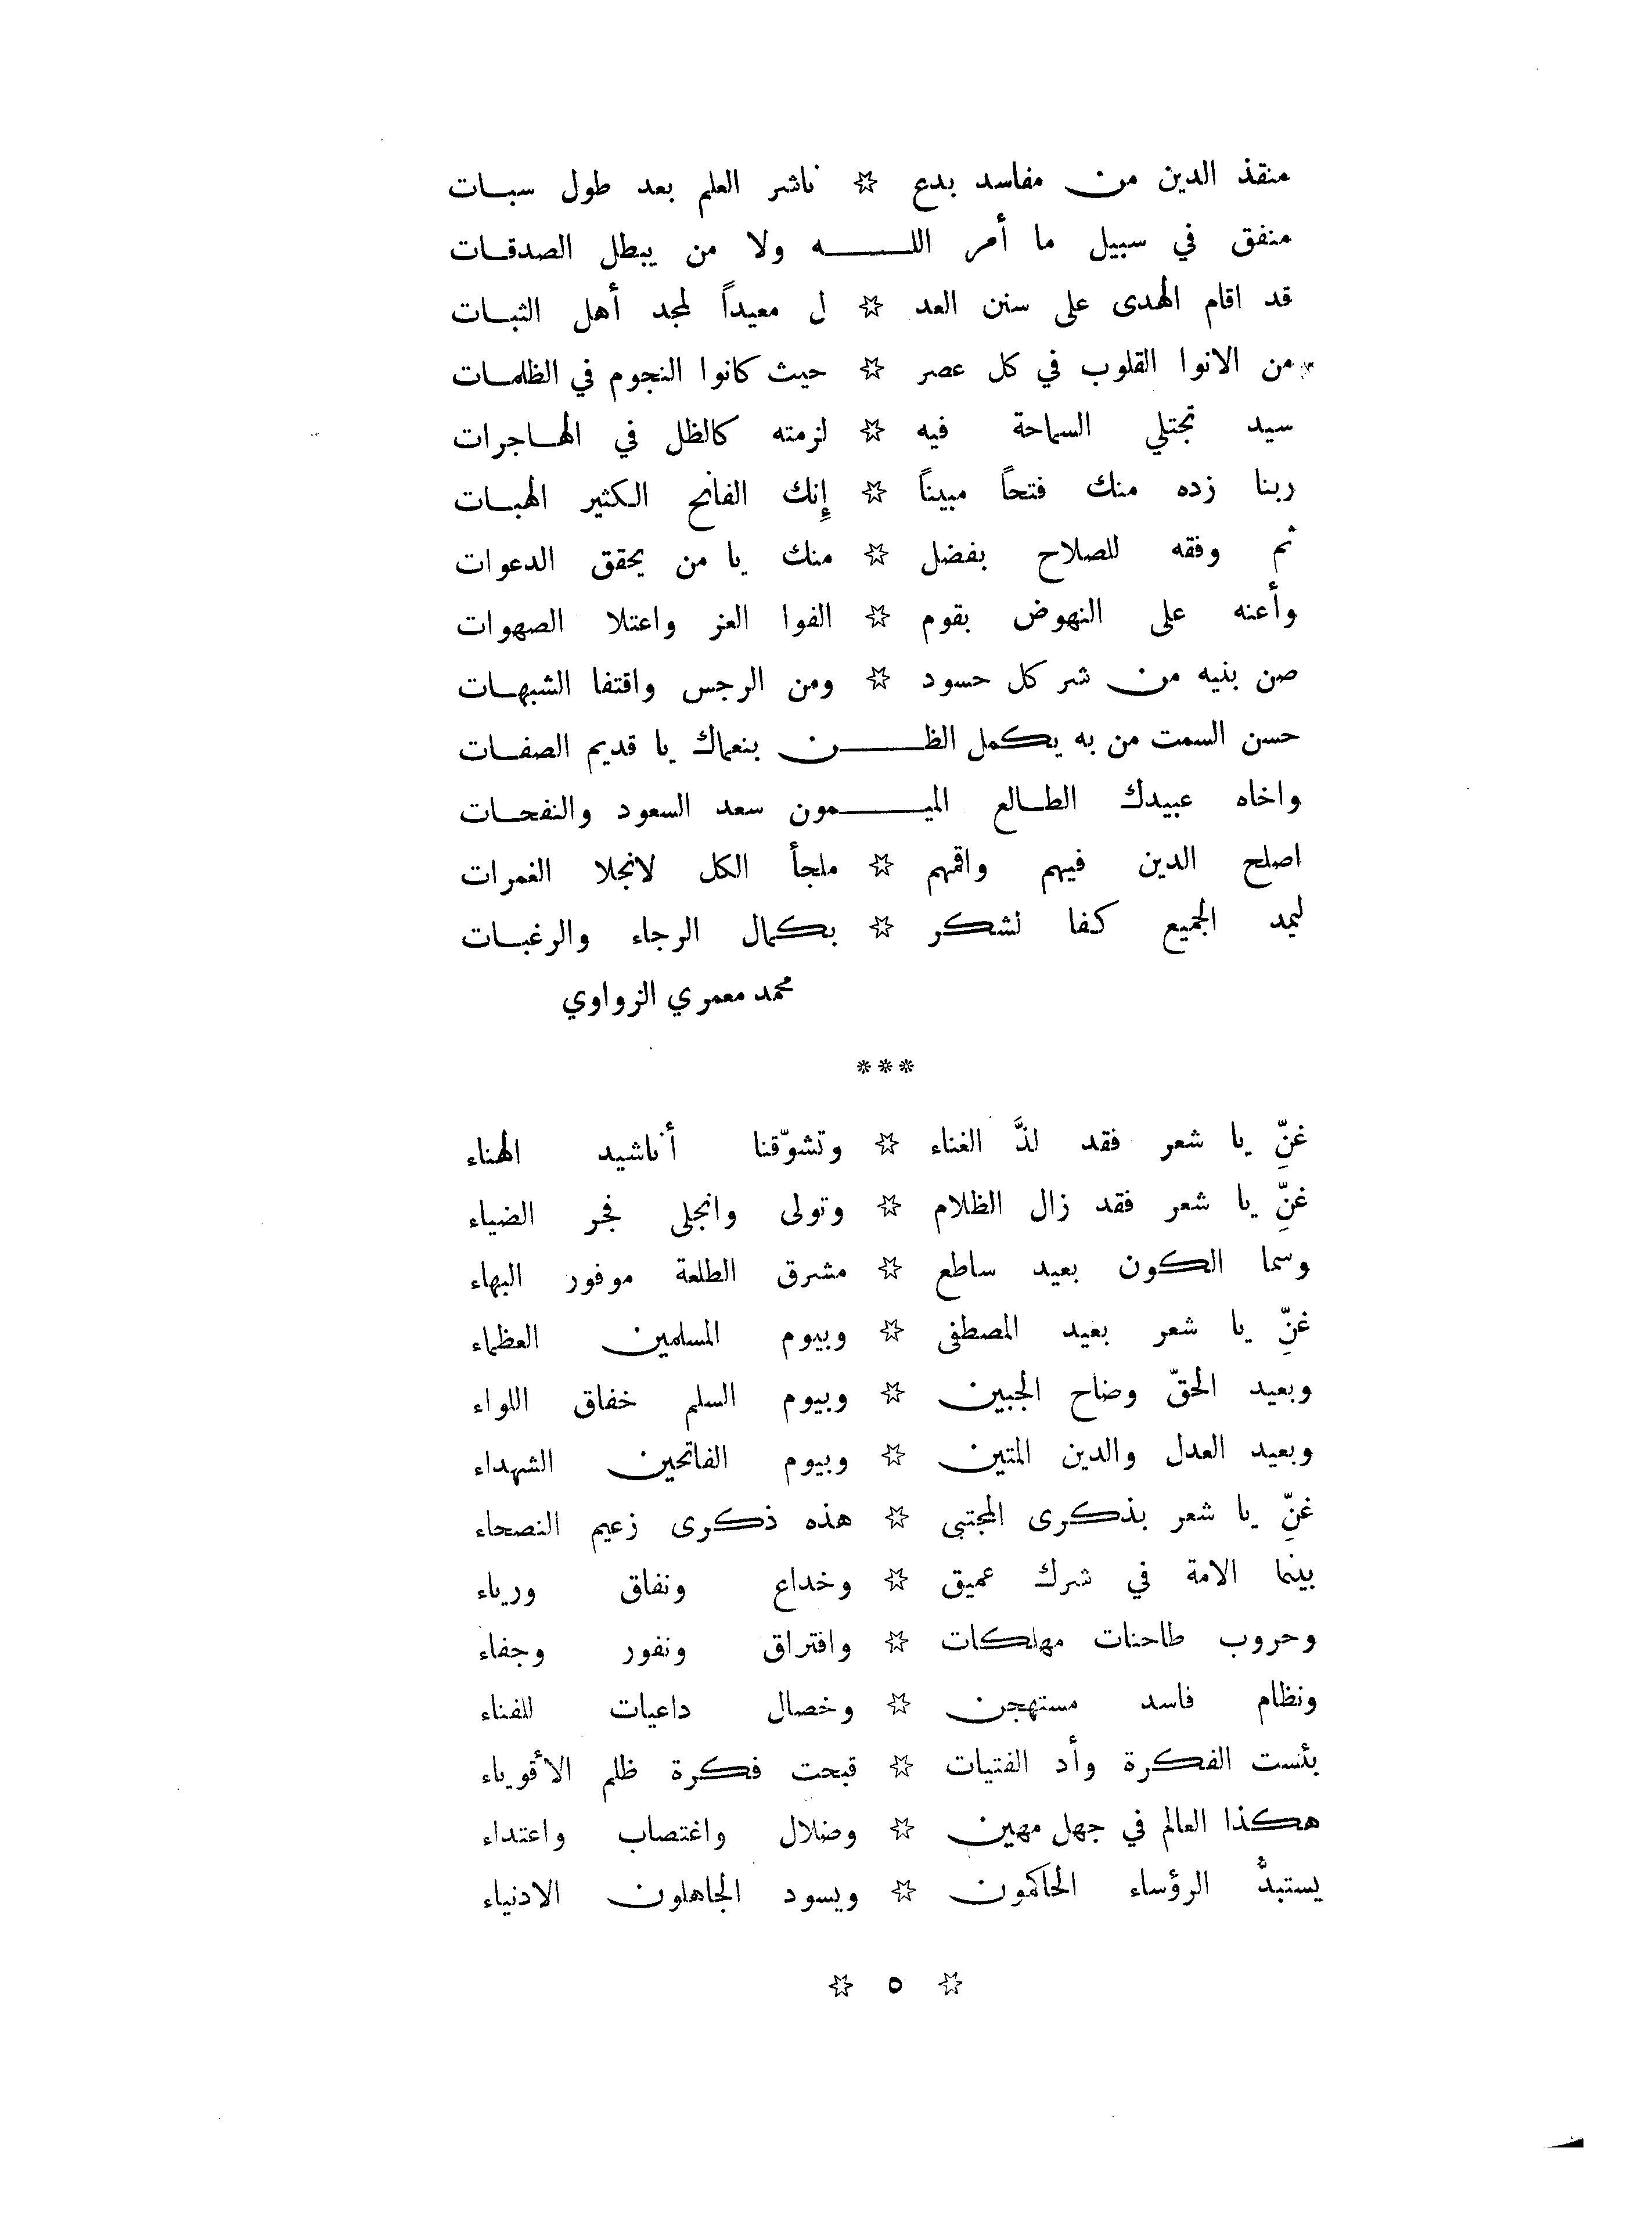 منقذ الدين من مفاسد بدع ☆ ناشر العلم بعد طول سبات
منفق في سبيل ما أمر اللـــــه ولا من يبطل الصدقات
قد اقام الهدى على سنن العد ☆ ل معيداً لمجد أهل الثبات
من الانوا القلوب في كل عصر ☆ حيث كانوا النجوم في الظلمات
سيد تجتلي السماحة فيه ☆ لزمته كالظل في الهاجرات
ربنا زده منك فتحاً مبيناً ☆ إِنك الفاتح الكثير الهبات
ثم وفقه للصلاح بفضل ☆ منك يا من يحقق الدعوات
وأعنه على النهوض بقوم ☆ الفوا العز واعتلا الصهوات
صن بنيه من شر كل حسود ☆ ومن الرجس واقتفا الشبهات
حسن السمت من به يكمل الظـــــن بنعماك يا قديم الصفات
واخاه عبيدك الطالع الميـــــمون سعد السعود والنفحات
اصلح الدين فيهم واقمهم ☆ ملجأ الكل لانجلا الغمرات
ليمد الجميع كفا لشكر ☆ بكمال الرجاء والرغبات
محمد معمري الزواوي
***
غنِّ يا شعر فقد لذَّ الغناء ☆ وتشوّقنا أناشيد الهناء
غنِّ يا شعر فقد زال الظلام ☆ وتولى وانجلى فجر الضياء
وسما الكون بعيد ساطع ☆ مشرق الطلعة موفور البهاء
غنِّ يا شعر بعيد المصطفى ☆ وبيوم المسلمين العظماء
وبعيد الحقّ وضاح الجبين ☆ وبيوم السلم خفاق اللواء
وبعيد العدل والدين المتين ☆ وبيوم الفاتحين الشهداء
غنِّ يا شعر بذكرى المجتبى ☆ هذه ذكرى زعيم النصحاء
بينما الامة في شرك عميق ☆ وخداع ونفاق ورياء
وحروب طاحنات مهلكات ☆ وافتراق ونفور وجفاء
ونظام فاسد مستهجن ☆ وخصال داعيات للفناء
بئست الفكرة وأد الفتيات ☆ قبحت فكرة ظلم الأقوياء
هكذا العالم في جهل مهين ☆ وضلال واغتصاب واعتداء
يستبدُّ الرؤساء الحاكمون ☆ ويسود الجاهلون الادنياء
☆ ٥ ☆